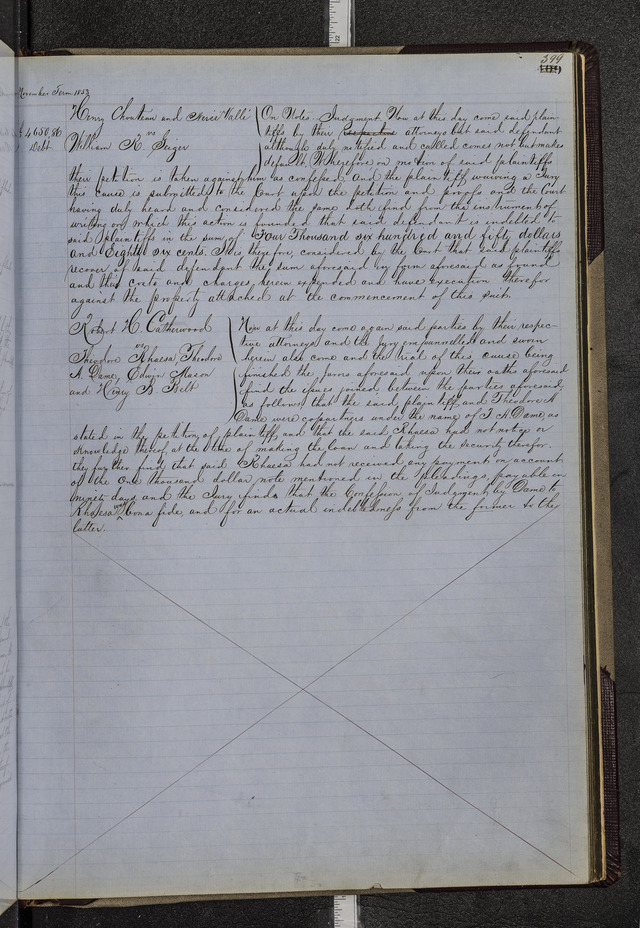 399
November Term 1853
Henry Chouteau and Neree Valle
vs
William K. Geiger
$4650,86
Debt
On Notes. Judgment. Now at this day come said plain-
tiffs by their respective attorneys but said defendant
although duly notified and called comes not but makes
default. Wherefore on motion of said plaintiffs
their petition is taken against him as confessed. And the plaintiff waiving a Jury
this cause is submitted to the Court upon the petition and proofs and the Court
having duly heard and considered the same doth find from the instrument of
writing on which this action is founded that said defendant is indebted to
said plaintiffs in the sum of Four Thousand six hundred and fifty dollars
and Eighty six cents. It is therefore considered by the Court that said plaintiffs
recover of said defendant the sum aforesaid in form aforesaid as found
and their costs and charges herein expended and have execution therefor
against the property attached at the commencement of this suit.
Robert H. Catherwood
vs
Theodore Khaesa, Theodore
A. Dame, Edwin Mason
and Henry B. Belt
Now at this day come again said parties by their respec-
tive attorneys and the Jury empannelled and sworn
herein also come and the trial of this cause being
finished the Jurors aforesaid upon their oaths aforesaid
find the issues joined between the parties aforesaid
as follows, that the said plaintiff and Theodore A
Dame were copartners under the name of T. A Dame as
stated in the petition of plaintiff, and that the said Khaesa had not notice or
knowledge thereof at the time of making the loan and taking the security therefor.
they further find that said Khaesa had not received any payment on account
of the One thousand dollar note mentioned in the pleadings, payable in
ninety days and the Jury finds that the Confession of Judgment by Dame to
Khaesa was bona fide, and for an actual indebtedness from the former to the
latter.